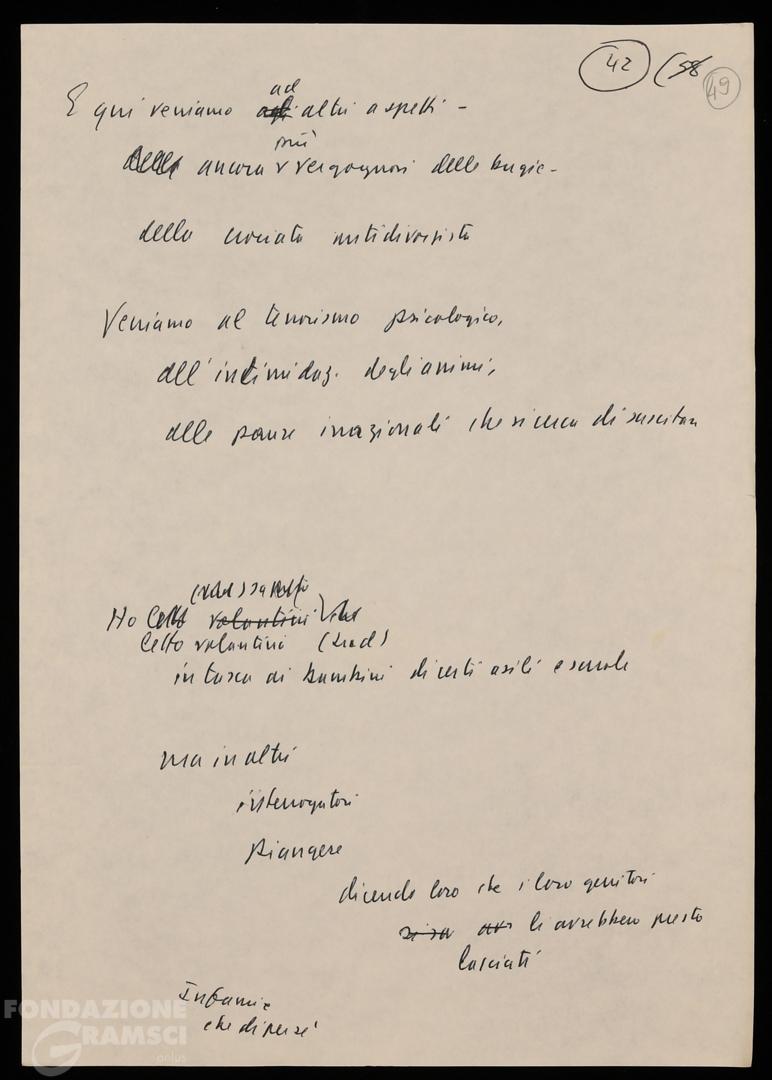 42 (58 49
E qui veniamo agli ad altri aspetti -
delle ancora più vergognosi delle bugie -
della crociata antidivorzista
Veniamo al terrorismo psicologico,
all'intimidaz. degli animi,
alle paure irrazionali che si cerca di suscitare
Ho letto volantini
letto volantini
in tasca ai bambini di certi asili e scuole
ma in altri
interrogatori
piangere
dicendo loro che i loro genitori
li avrebbero presto
lasciati
Infamie
che di per sé
FONDAZIONE
GRAMSCI
onlus